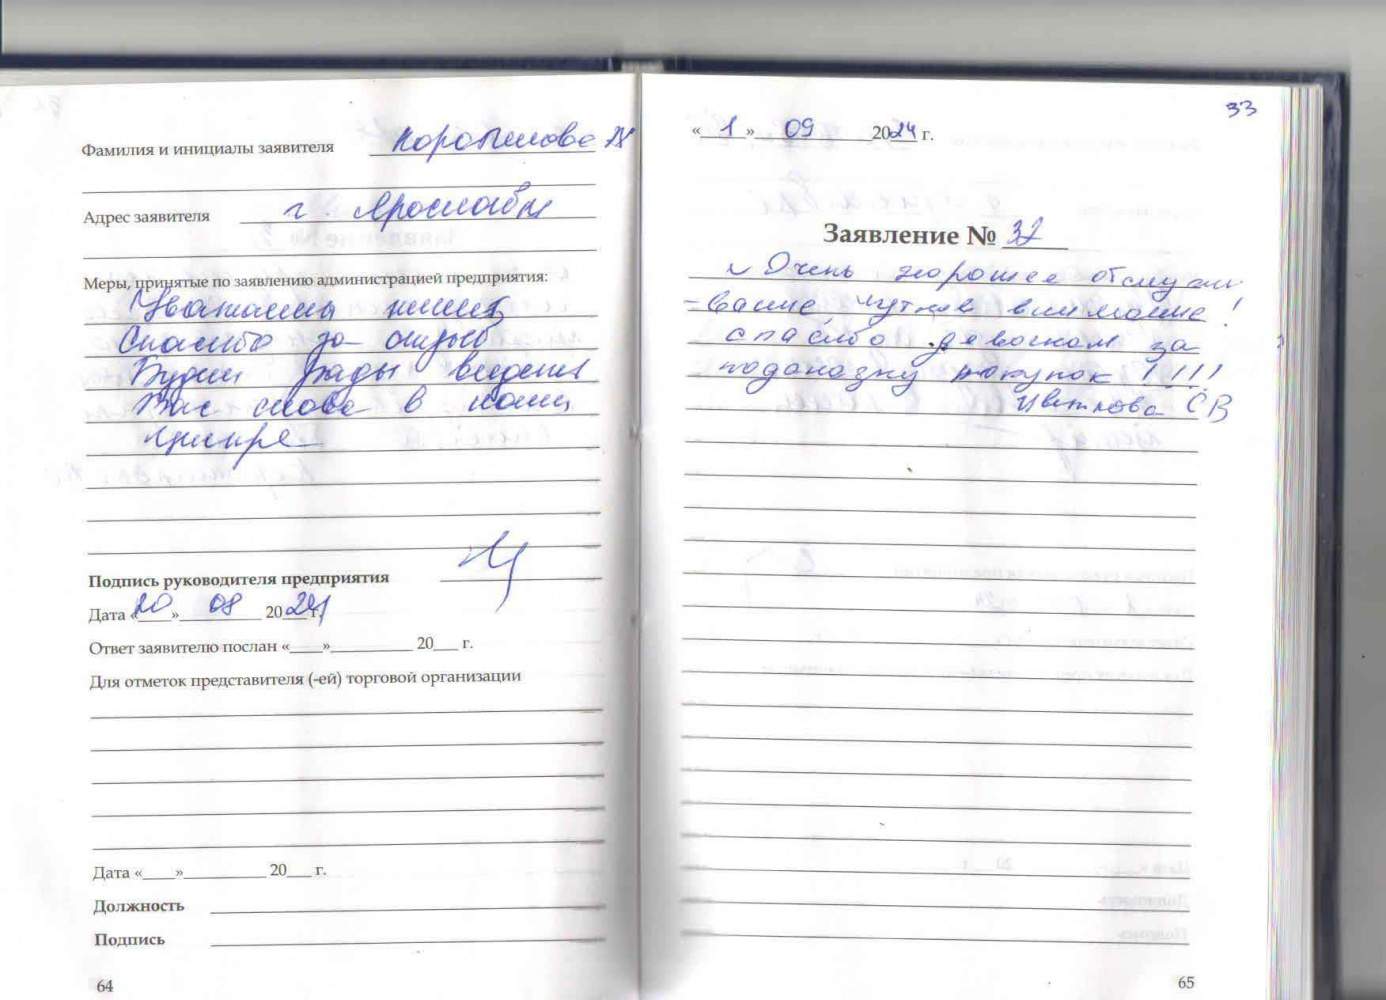 Фамилия и инициалы заявителя
Адрес заявителя г. Ярославль
Меры, принятые по заявлению администрацией предприятия:
Спасибо за отзыв
Будем рады видеть
Вас снова в нашем
центре
Подпись руководителя предприятия
Дата «20» 08 2024 г.
Ответ заявителю послан «____»__________ 20___ г.
Для отметок представителя (-ей) торговой организации
Дата «____»__________ 20___ г.
Должность
Подпись
64
33
«1» 09 2024 г.
Заявление № 32
Очень хорошее обслужи
-вание, чуткое внимание!
спасибо девочкам за
подсказку покупок !!!!
Цветкова СВ
65